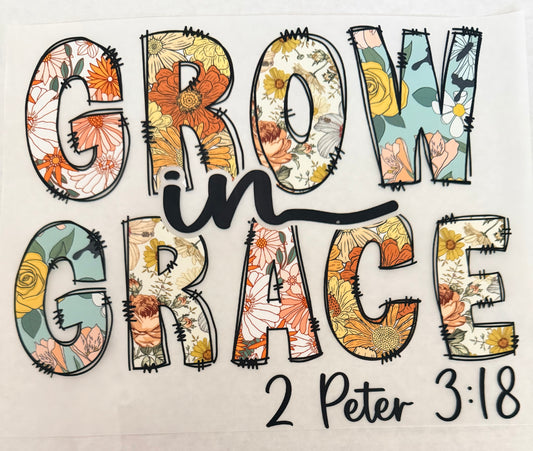 GROW
in
GRACE
2 Peter 3:18